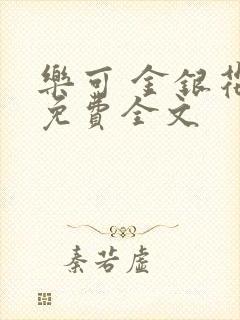 樂可 金銀花
免費全文
秦若虛